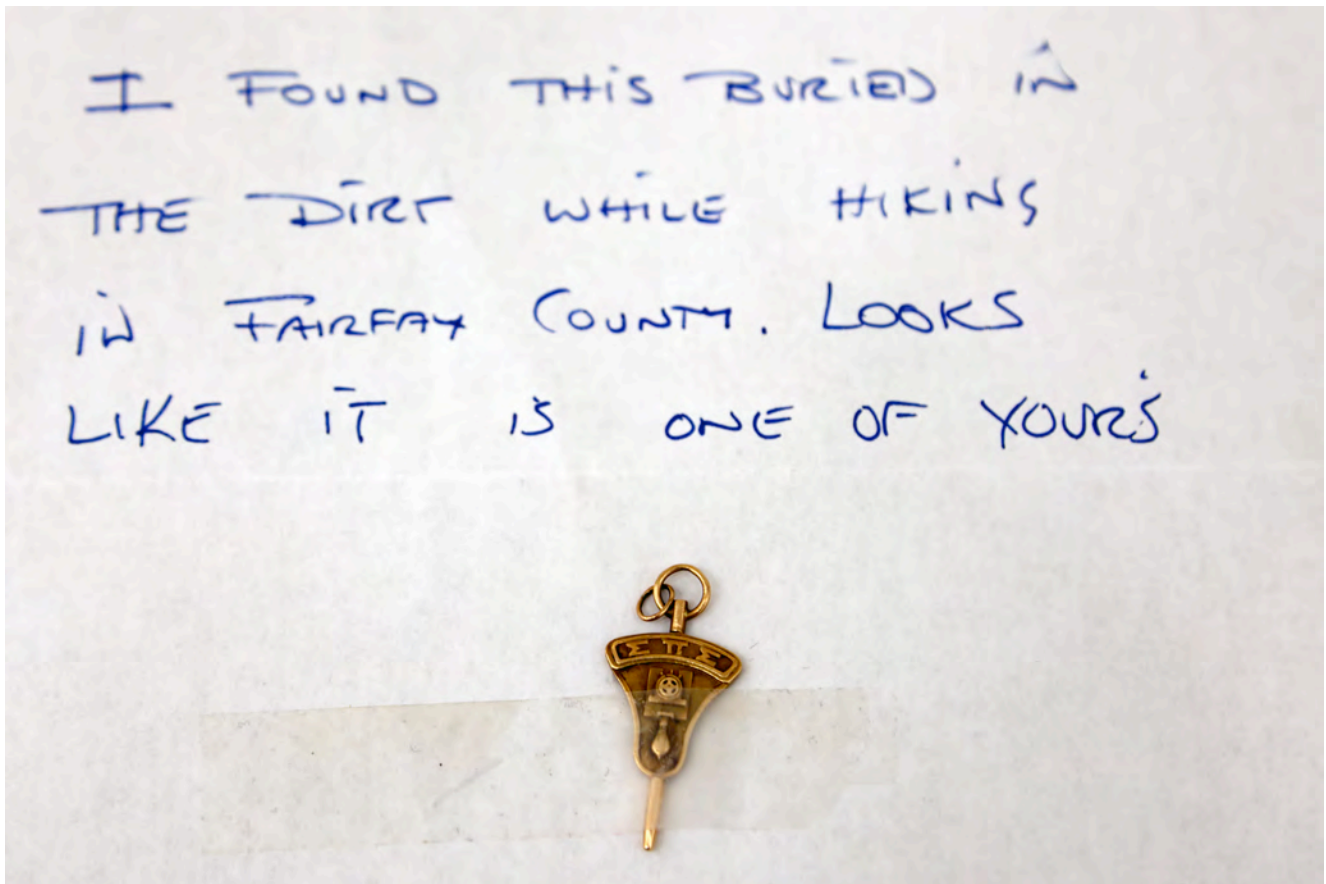 I FOUND THIS BURIED IN
THE DIRT WHILE HIKING
IN FAIRFAX COUNTY. LOOKS
LIKE IT IS ONE OF YOURS
ΣΠΣ